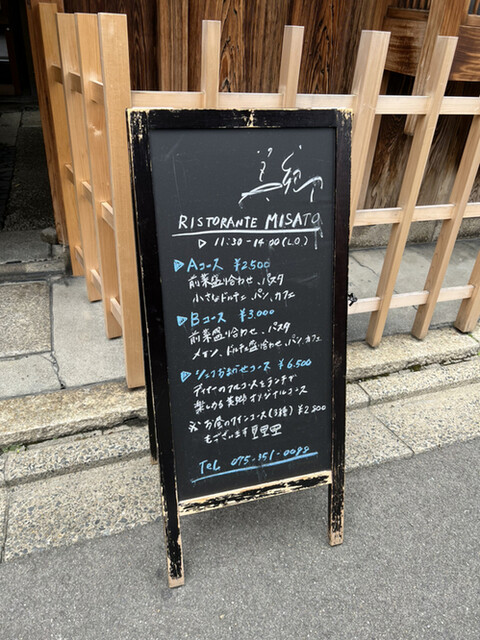 RISTORANTE MISATO
▷ 11:30-14:00(L.O.)
▷Aコース ¥2.500
前菜盛り合わせ、パスタ
小さなドルチェ、パン、カフェ
▷Bコース ¥3.000
前菜盛り合わせ、パスタ
メイン、ドルチェ盛り合わせ、パン、カフェ
▷シェフおまかせコース ¥6.500
ディナーのフルコースをランチで
楽しめる美郷オリジナルコース
※お昼のワインコース(3種)¥2.800
もございます
Tel 075-351-0098